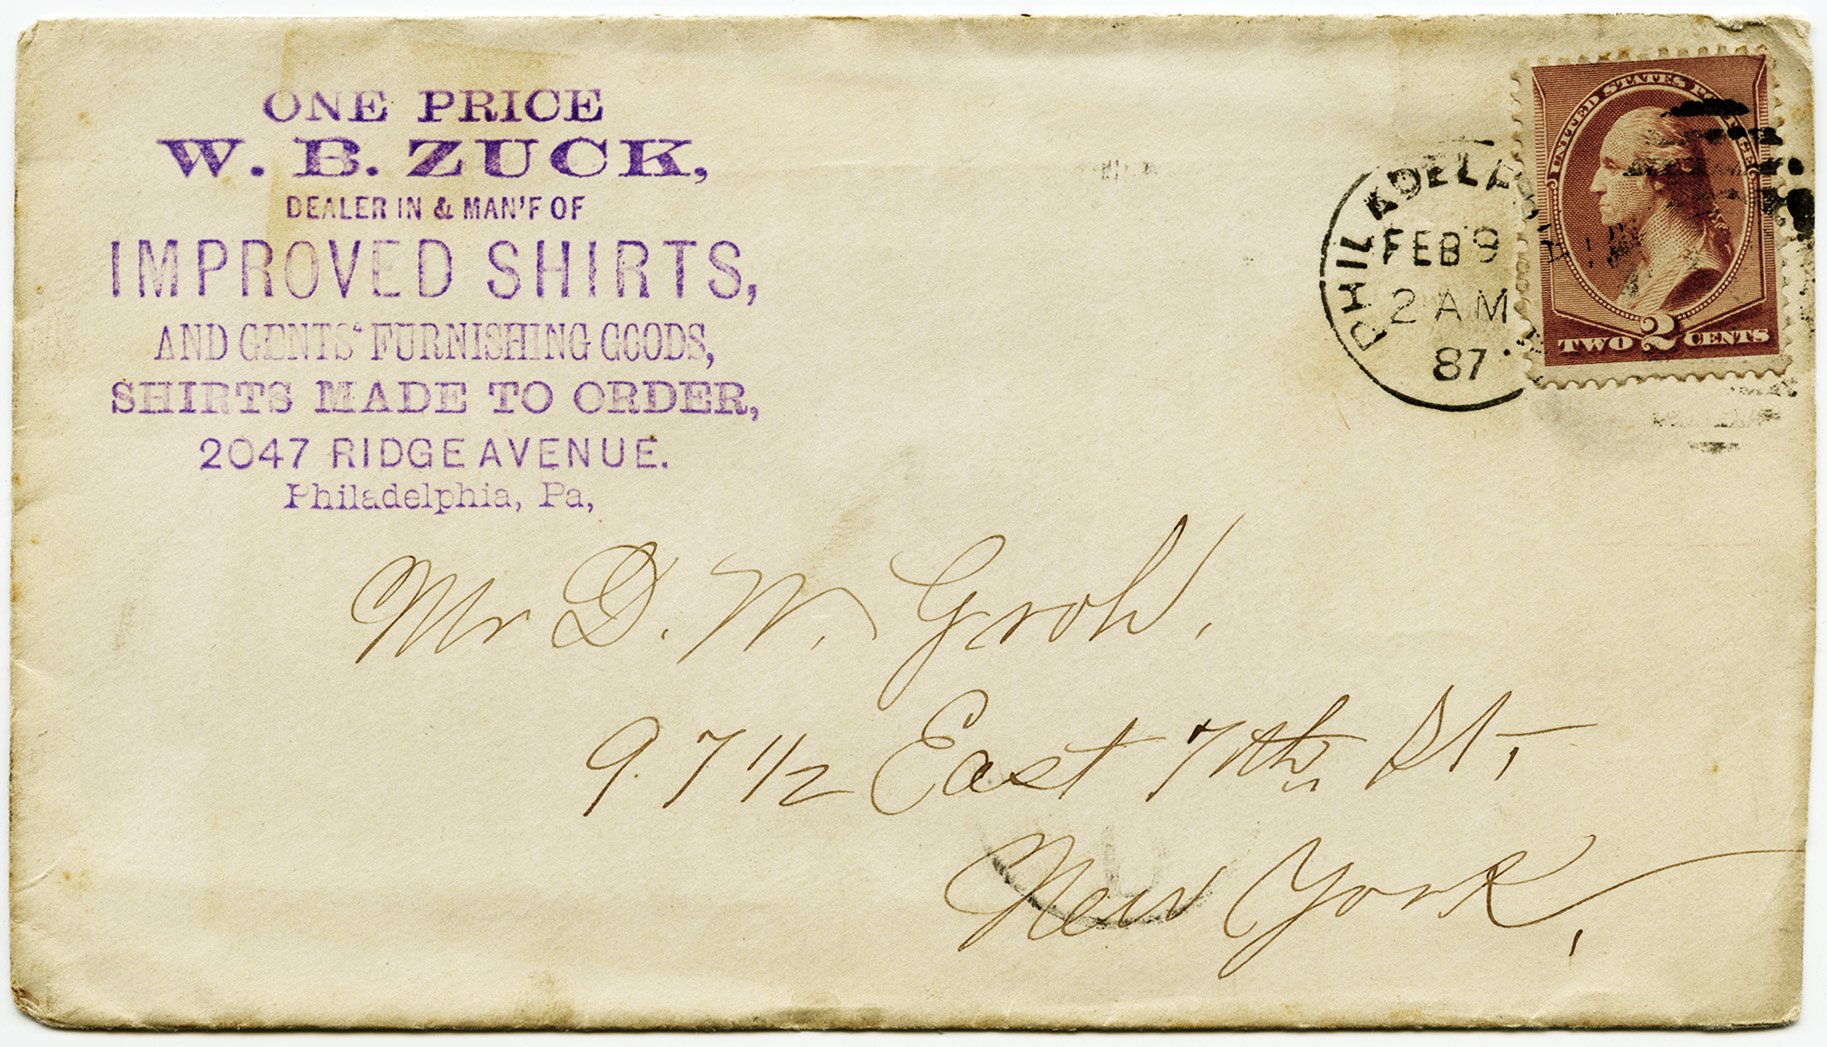 ONE PRICE
W. B. ZUCK,
DEALER IN & MAN'F OF
IMPROVED SHIRTS,
AND GENTS' FURNISHING GOODS,
SHIRTS MADE TO ORDER,
2047 RIDGE AVENUE.
Philadelphia, Pa,
PHILADEL
FEB 9
2 AM
87
UNITED STATES POSTAGE
TWO 2 CENTS
Mr D. W. Groh.
97 1/2 East 7th St,
New York,